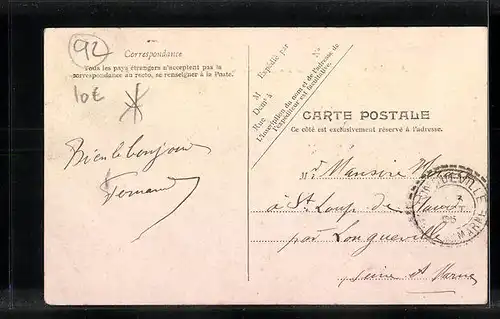 92
10€
Correspondance
Tous les pays étrangers n'acceptent pas la
correspondance au recto, se renseigner à la Poste.
Bien le bonjour
Fernand
Expédié par
M
Demt à
Rue
N°
L'inscription du nom et de l'adresse de
l'expéditeur est facultative.
CARTE POSTALE
Ce côté est exclusivement réservé à l'adresse.
M
à St Loup de
par Longueville
Seine et Marne
VILLE
MARNE